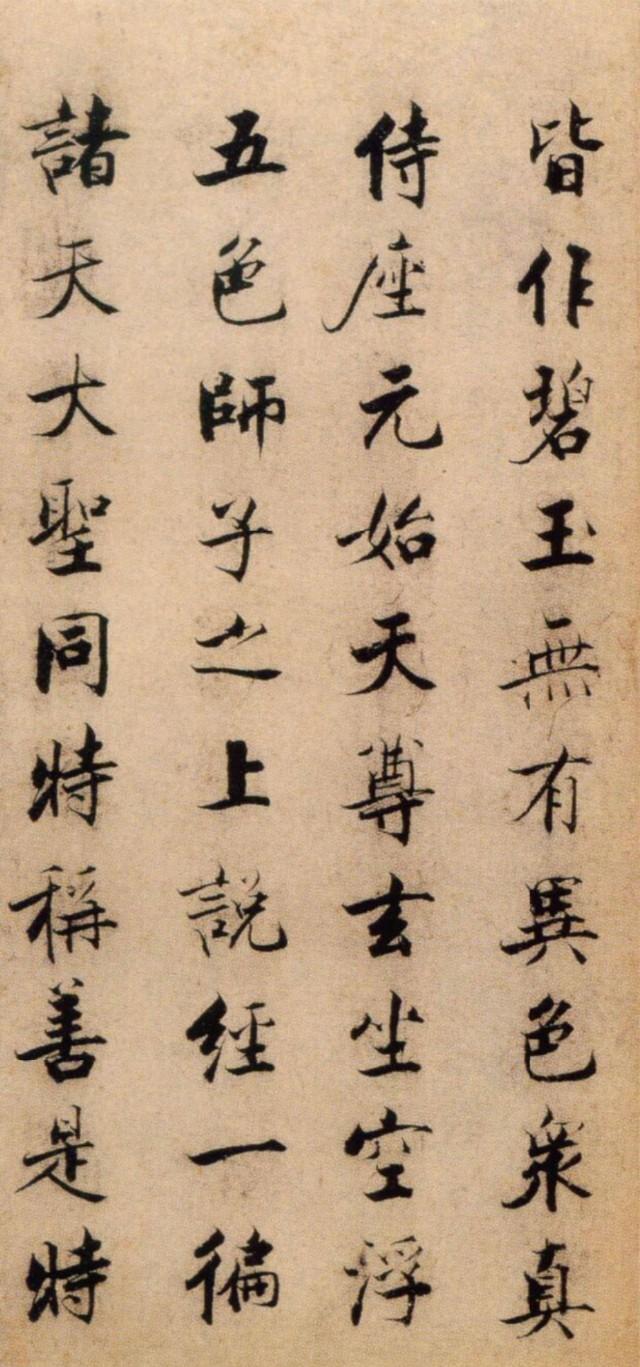 皆作碧玉無有異色衆真
侍座元始天尊玄坐空浮
五色師子之上説經一徧
諸天大聖同特稱善是特